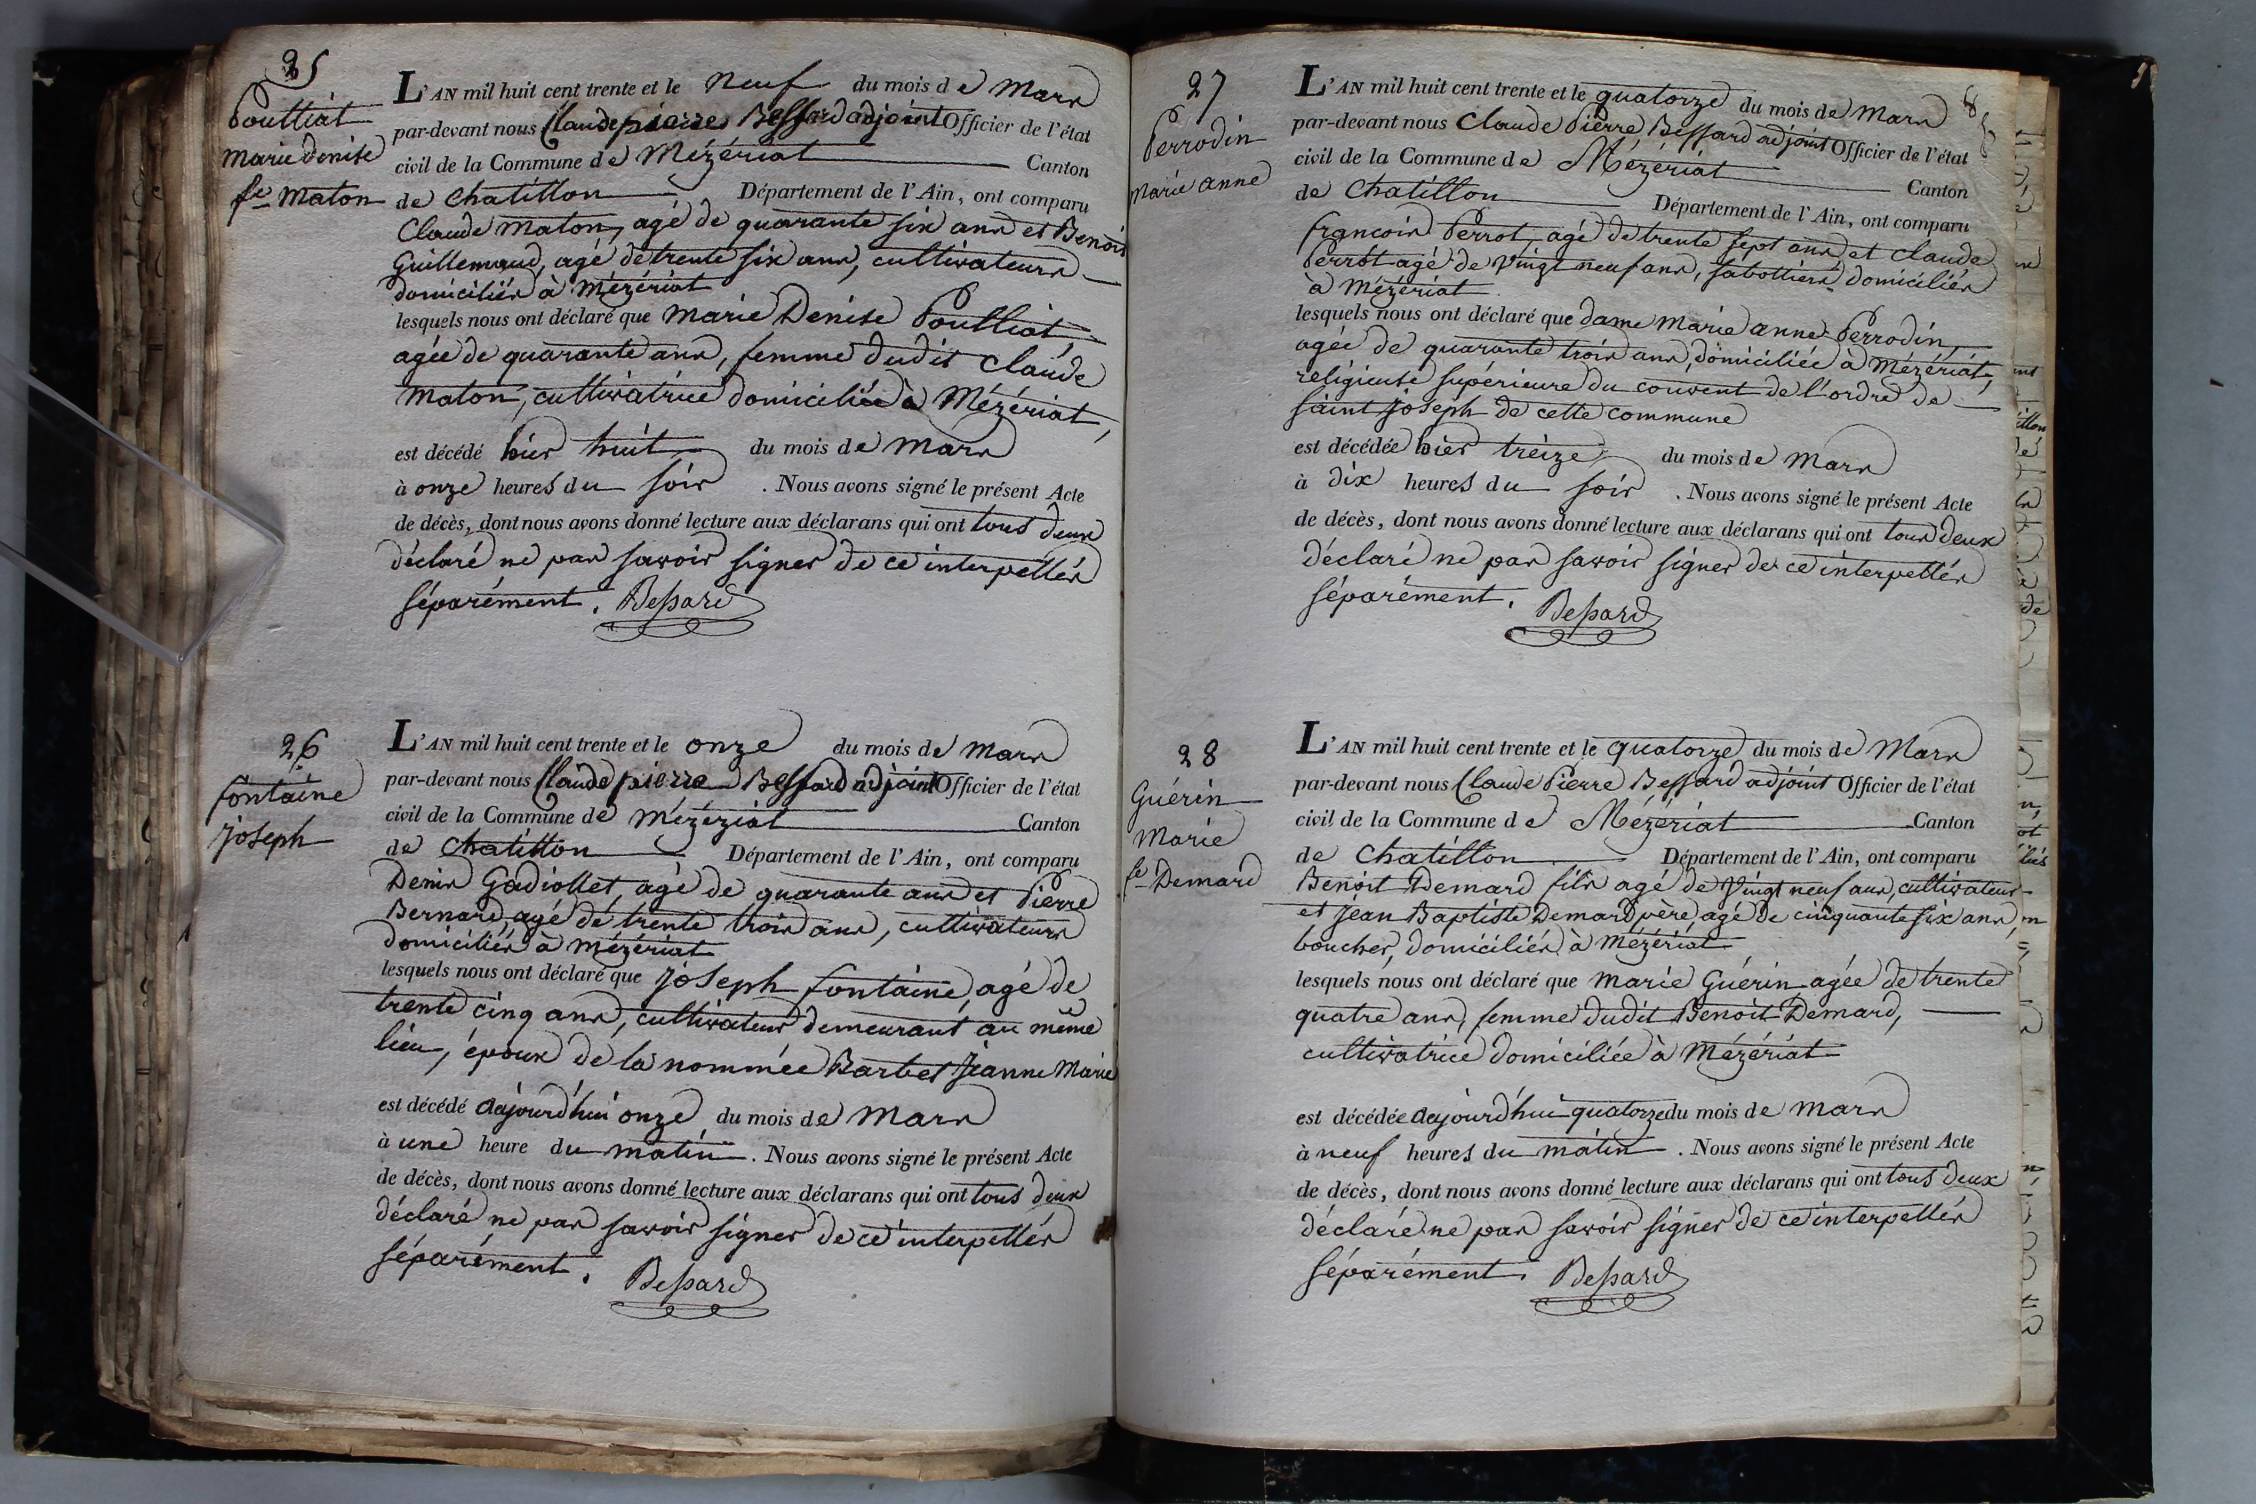 25
Poulliat
marie denise
fe. Maton
L'AN mil huit cent trente et le neuf du mois de Mars
par-devant nous Claude pierre Bessard adjoint Officier de l'état
civil de la Commune de Mézériat Canton
de Chatillon Département de l'Ain, ont comparu
Claude Maton, agé de quarante six ans et Benoit
Guillemaud, agé de trente six ans, cultivateurs
domiciliés à Mézériat
lesquels nous ont déclaré que Marie Denise Poulliat,
agée de quarante ans, femme dudit Claude
Maton, cultivatrice domiciliée à Mézériat,
est décédé hier huit du mois de Mars
à onze heures du soir . Nous avons signé le présent Acte
de décès, dont nous avons donné lecture aux déclarans qui ont tous deux
déclaré ne pas savoir signer de ce interpellés
séparément. Bessard
26
fontaine
joseph
L'AN mil huit cent trente et le onze du mois de Mars
par-devant nous Claude pierre Bessard adjoint Officier de l'état
civil de la Commune de Mézériat Canton
de Chatillon Département de l'Ain, ont comparu
Denis Gadiollet, agé de quarante ans et Pierre
Bernard, agé de trente trois ans, cultivateurs
domiciliés à Mézériat
lesquels nous ont déclaré que joseph fontaine, agé de
trente cinq ans, cultivateur demeurant au même
lieu, époux de la nommée Barbet Jeanne Marie
est décédé aujourd'hui onze du mois de Mars
à une heure du matin . Nous avons signé le présent Acte
de décès, dont nous avons donné lecture aux déclarans qui ont tous deux
déclaré ne pas savoir signer de ce interpellés
séparément. Bessard
27
Perrodin
Marie anne
L'AN mil huit cent trente et le quatorze du mois de Mars
par-devant nous Claude Pierre Bessard adjoint Officier de l'état
civil de la Commune de Mézériat Canton
de Chatillon Département de l'Ain, ont comparu
françois Perrot, agé de trente sept ans, et Claude
Perrot agé de vingt neuf ans, sabottiers domiciliés
à Mézériat
lesquels nous ont déclaré que dame Marie anne Perrodin,
agée de quarante trois ans, domiciliée à Mézériat,
religieuse supérieure du couvent de l'ordre de
saint joseph de cette commune
est décédée hier treize du mois de Mars
à dix heures du soir . Nous avons signé le présent Acte
de décès, dont nous avons donné lecture aux déclarans qui ont tous deux
déclaré ne pas savoir signer de ce interpellés
séparément. Bessard
28
Guérin
Marie
fe. Demard
L'AN mil huit cent trente et le quatorze du mois de Mars
par-devant nous Claude Pierre Bessard adjoint Officier de l'état
civil de la Commune de Mézériat Canton
de Chatillon Département de l'Ain, ont comparu
Benoit Demard fils agé de vingt neuf ans, cultivateur
et jean Baptiste Demard père, agé de cinquante six ans,
boucher, domiciliés à Mézériat
lesquels nous ont déclaré que Marie Guérin agée de trente
quatre ans, femme dudit Benoit Demard,
cultivatrice domiciliée à Mézériat
est décédée aujourd'hui quatorze du mois de Mars
à neuf heures du matin . Nous avons signé le présent Acte
de décès, dont nous avons donné lecture aux déclarans qui ont tous deux
déclaré ne pas savoir signer de ce interpellés
séparément. Bessard